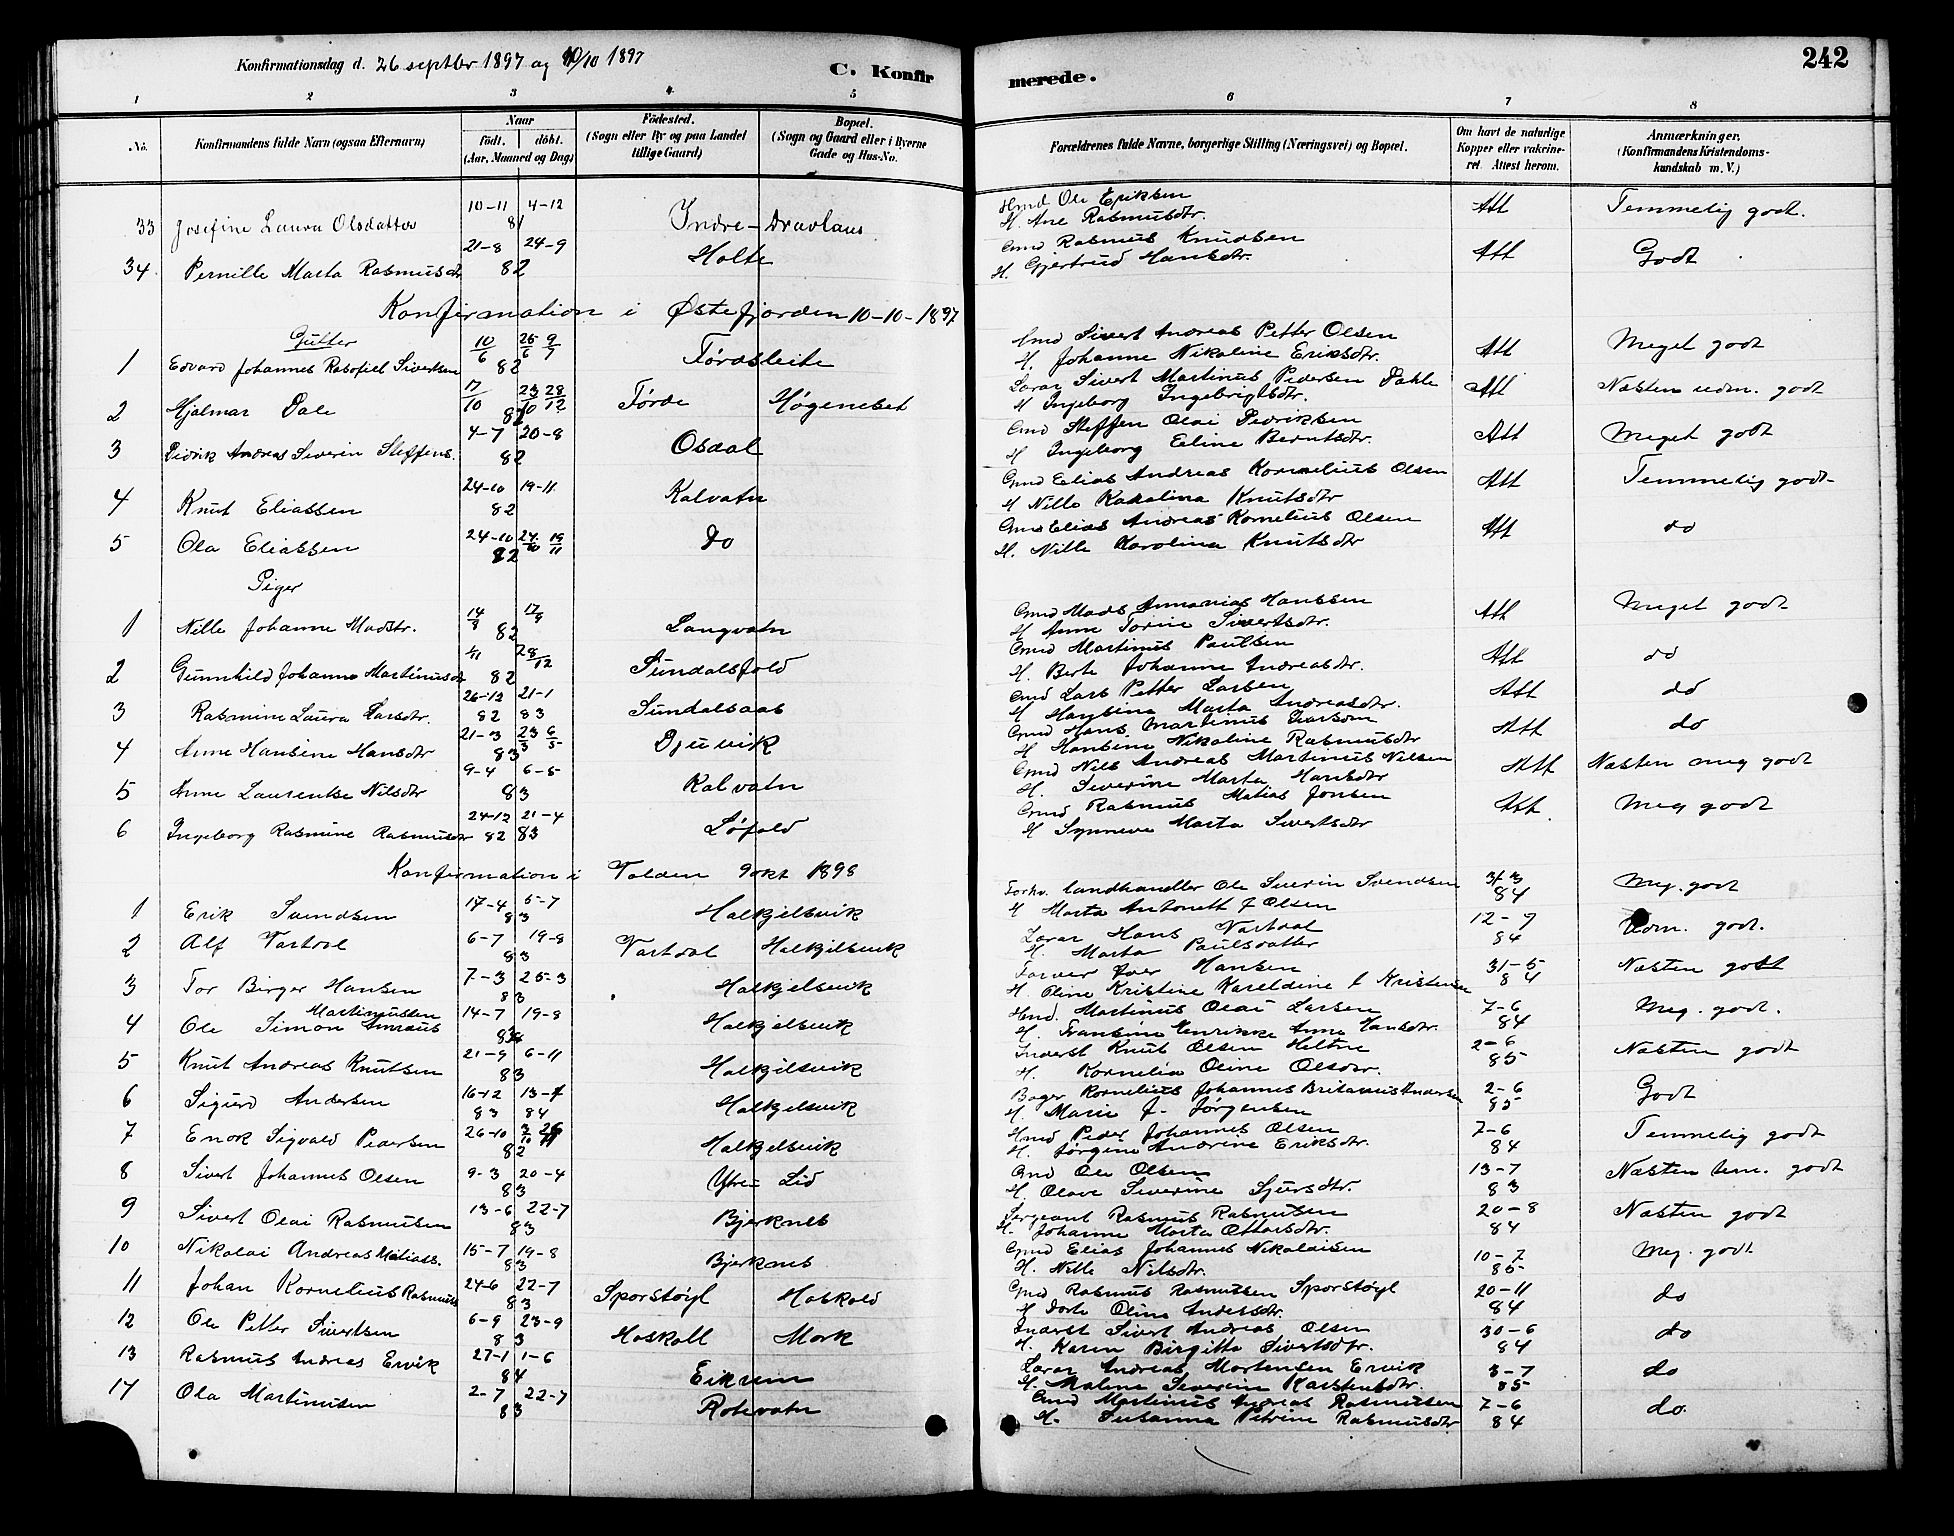 Konfirmationsdag d. 26 septbr 1897 og 10/10 1897
C. Konfirmerede.
242
1 2 3 4 5 6 7 8
No.
Konfirmandens fulde Navn (ogsaa Efternavn)
Naar
født. døbt.
(Aar, Maaned og Dag)
Fødested.
(Sogn eller By og paa Landet tillige Gaard)
Bopæl.
(Sogn og Gaard eller i Byerne Gade og Hus-No.
Forældrenes fulde Navne, borgerlige Stilling (Næringsvei) og Bopæl.
Om havt de naturlige Kopper eller vakcineret. Attest herom.
Anmærkninger.
(Konfirmandens Kristendomskundskab m. V.)
33 Josefine Laura Olsdatter 10-11 4-12 81 Indre-Dravlaus Hmd Ole Eriksen H. Ane Rasmusdtr. Att Temmelig godt.
34. Pernille Marta Rasmusdtr 21-8 24-9 82 Holte Gmd Rasmus Knudsen H. Gjertrud Hansdtr. Att Godt
Konfirmation i Østefjorden 10-10-1897
Gutter
1 Edvard Johannes Rasofiel Sivertsen 10/6 25/6 9/7 82 Førdsleite Gmd Sivert Andreas Petter Olsen H. Johanne Nikoline Eriksdtr. Att Meget godt
2 Hjalmar Dale 17/10 23/10 28/12 82 Førde Høgeneset Lærar Sivert Martinus Pedersen Dahle H Ingeborg Ingebrigtsdtr. Att Næsten udm. godt
3 Didrik Andreas Severin Steffens. 4-7 20-8 82 Osdal Gmd Steffen Olai Didriksen H Ingeborg Eline Berntsdtr. Att Meget godt
4 Knut Eliassen 24-10 19-11 82 Kalvatn Gmd Elias Andreas Kornelius Olsen H Nille Karolina Knutsdtr Att Temmelig godt-
5 Ola Eliassen 24-10 24/10 19/11 82 do Gmd Elias Andreas Kornelius Olsen H. Nille Karolina Knutsdtr Att do
Piger
1 Nille Johanne Madstr. 14/8 17/9 82 Langvatn Gmd Mads Annanias Hanssen H Anne Torine Sivertsdtr. Att Meget godt
2 Gunnhild Johanne Martinusdtr 1/11 28/12 82 Sundalsfold Gmd Martinus Paulsen H. Berte Johanne Andreasdtr. Att do
3 Rasmine Laura Larsdtr. 26-12 21-1 82 83 Sundalsaas Gmd Lars Petter Larsen H Hansine Marta Andreasdtr. Att do
4 Anne Hansine Hansdtr 21-3 23/3 6/5 83 Djuvik Gmd Hans Martinus H Hansine Nikoline Rasmusdtr Att do
5 Anne Laurentse Nilsdtr 9-4 6-5 83 Kalvatn Gmd Nils Andreas Martinus Nilsen H. Severine Marta Hansdtr Att Næsten meg godt
6 Ingeborg Rasmine Rasmusdtr 24-12 21-4 82 83 Løfold Gmd Rasmus Matias Jonsen H Synneve Marta Sivertsdtr Att. Meg godt
Konfirmation i Volden 9 okt 1898
1 Erik Svendsen 17-4 5-7 83 Halkjelsvik Forhv. landhandler Ole Severin Svendsen H Marta Antonett f Olsen 31-3 84 Meg. godt
2 Alf Vartdal 6-7 19-8 83 Vartdal Halkjelsvik Lærar Hans Vartdal H. Marta Paulsdatter 12-9 84 Udm. godt.
3 Tor Birger Hansen 7-3 25-3 83 Halkjelsvik Farver Iver Hansen H. Oline Kristine Kareldine f Kristensen 31-5 84 Næsten godt
4 Ole Simon Martinussen 14-7 19-8 83 Halkjelsvik Hmd. Martinus Olai Larsen H. Fransine Henrikke Anne Hansdtr. 7-6 84 Meg. godt.
5 Knut Andreas Knutsen 21-9 6-11 83 Halkjelsvik Inderst Knut Olsen Heltne H. Kornelia Oline Olsdtr. 2-6 85 Næsten godt
6 Sigurd Andersen 16-12 13-4 83 84 Halkjelsvik Bager Kornelius Johannes Britanus Andersen H. Marie f. Jørgensen 2-6 85 Godt
7 Enok Sigvald Pedersen 26-10 82 Halkjelsvik Hmd Peder Johannes Olsen H. Jørgine Andrine Eriksdtr. 7-6 84 Temmelig godt
8 Sivert Johannes Olsen 9-3 20-4 83 Ytre-Lid Gmd Ole Olsen H. Olave Severine Sjursdtr. 13-7 83 Næsten tem. godt
9 Sivert Olai Rasmusen 13-6 22-7 83 Bjerknes Sergeant Rasmus Rasmusen H. Johanne Marta Ottarsdtr. 20-8 84 Næsten godt
10 Nikolai Andreas Eliass. 15-7 19-8 83 Bjerknes Gmd Elias Johannes Nikolaisen H. Nille Nilsdtr. 10-7 85 Meg. godt
11 Johan Kornelius Rasmuss 24-6 22-7 83 Sporstøyl Haskold Gmd Rasmus Rasmussen Sporstøyl H Dorte Oline Andersdtr. 20-11 84 do
12 Ole Petter Sivertsen 6-9 23-9 83 Haskoll Mork Inderst Sivert Andreas Olsen H. Karen Birgitta Sivertsdtr. 30-6 84 do
13 Rasmus Andreas Ervik 27-1 1-6 84 Eikrem Lærar Andreas Mortensen Ervik H. Malene Severine Karstensdtr. 3-7 85 do
14 Ola Martinusen 2-7 22-7 83 Rotevatn Gmd Martinus Andreas Rasmusen H. Susanna Petrine Rasmusdtr 7-6 84 do.